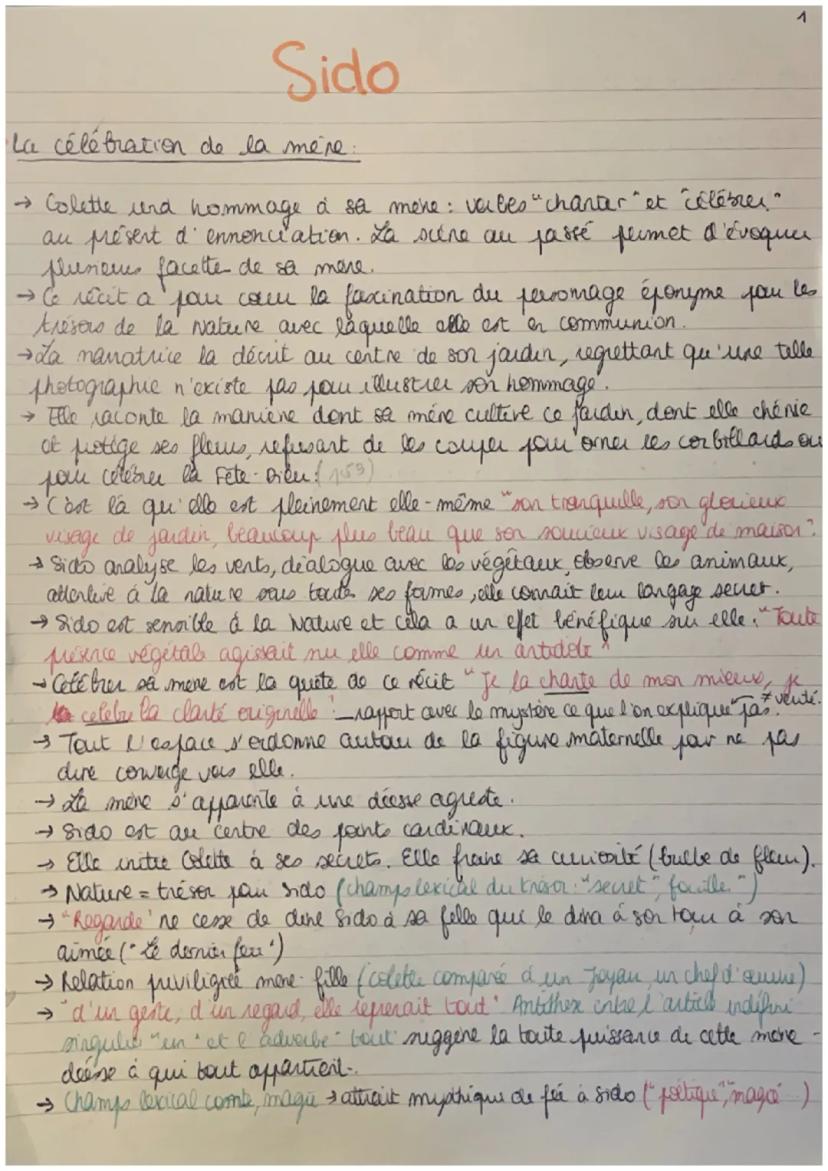 1
Sido
La célébration de la mère:
→ Colette rend hommage à sa mère : verbes "chanter" et "célébrer"
au présent d'ennonciation. La scène au passé permet d'évoquer
plusieurs facette de sa mère.
→ Ce récit a pour cœur la fascination du personnage éponyme pour les
trésors de la Nature avec laquelle elle est en communion.
→ La narratrice la décrit au centre de son jardin, regrettant qu'une telle
photographie n'existe pas pour illustrer son hommage.
→ Elle raconte la manière dont sa mère cultive ce jardin, dont elle chérie
et protège ses fleurs, refusant de les couper pour orner les corbillards ou
pour célébrer la Fête-Dieu. (p59)
→ C'est là qu'elle est pleinement elle-même "son tranquille, son glorieux
visage de jardin, beaucoup plus beau que son soucieux visage de maison".
→ Sido analyse les vents, dialogue avec les végétaux, observe les animaux,
attentive à la nature sous toute ses formes, elle connait leur langage secret.
→ Sido est sensible à la Nature et cela a un effet bénéfique sur elle. "Toute
présence végétale agissait sur elle comme un antidote"
→ Célébrer sa mère est la quête de ce récit "Je la chante de mon mieux, je
célèbre la clarté originelle" rapport avec le mystère ce que l'on explique pas. ≠ vérité.
→ Tout l'espace s'ordonne autour de la figure maternelle pour ne pas
dire converge vers elle.
→ La mère s'apparente à une déesse agreste.
→ Sido est au centre des points cardinaux.
→ Elle initie Colette à ses secrets. Elle freine sa curiosité (bulbe de fleur).
→ Nature = trésor pour Sido (champs lexical du trésor : "secret", fouille ")
→ "Regarde" ne cesse de dire Sido à sa fille qui le dira à son tour à son
aimée ("Le dernier feu")
→ Relation priviligiée mère-fille (colette comparé à un Joyau, un chef d'œuvre)
→ "d'un geste, d'un regard, elle reprenait tout" Antithèse entre l'article indéfini
singulier "un" et l'adverbe "tout" suggère la toute puissance de cette mère-
déesse à qui tout appartient.
→ Champs lexical conte, magie → attrait mythique de fée à Sido ("poétique", "magie")